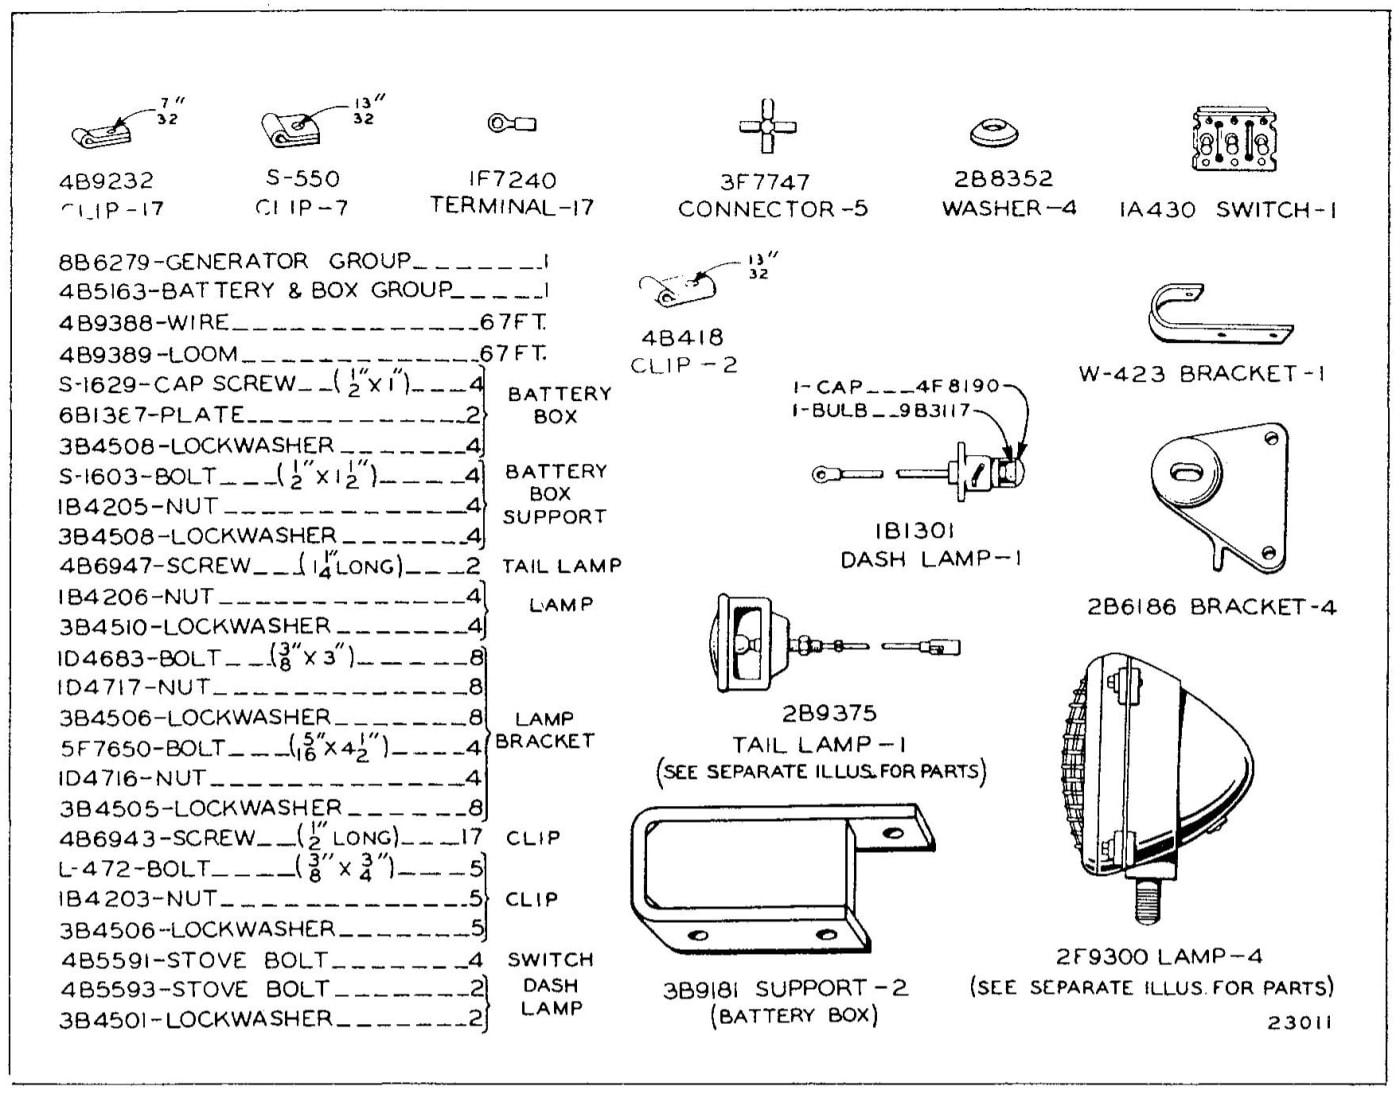 7"
32
13"
32
4B9232
CLIP-17
S-550
CLIP-7
1F7240
TERMINAL-17
3F7747
CONNECTOR-5
2B8352
WASHER-4
1A430 SWITCH-1
8B6279-GENERATOR GROUP_______1
4B5163-BATTERY & BOX GROUP_____1
4B9388-WIRE_____________67FT.
4B9389-LOOM____________67FT.
S-1629-CAP SCREW__(1/2"X1")___4
6B1387-PLATE____________2
3B4508-LOCKWASHER_______4
BATTERY
BOX
S-1603-BOLT___(1/2"X1 1/2")____4
1B4205-NUT_____________4
3B4508-LOCKWASHER_______4
BATTERY
BOX
SUPPORT
4B6947-SCREW___(1 1/4"LONG)___2 TAIL LAMP
1B4206-NUT_____________4
3B4510-LOCKWASHER_______4
LAMP
1D4683-BOLT___(3/8"X3")_____8
1D4717-NUT_____________8
3B4506-LOCKWASHER_______8
5F7650-BOLT___(5/16"X4 1/2")____4
1D4716-NUT_____________4
3B4505-LOCKWASHER_______8
LAMP
BRACKET
4B6943-SCREW__(1/2" LONG)___17 CLIP
L-472-BOLT____(3/8"X3/4")___5
1B4203-NUT_____________5
3B4506-LOCKWASHER_______5
CLIP
4B5591-STOVE BOLT_______4 SWITCH
4B5593-STOVE BOLT_______2
3B4501-LOCKWASHER_______2
DASH
LAMP
13"
32
4B418
CLIP-2
1-CAP___4F8190
1-BULB__9B3117
1B1301
DASH LAMP-1
W-423 BRACKET-1
2B6186 BRACKET-4
2B9375
TAIL LAMP-1
(SEE SEPARATE ILLUS. FOR PARTS)
3B9181 SUPPORT-2
(BATTERY BOX)
2F9300 LAMP-4
(SEE SEPARATE ILLUS. FOR PARTS)
23011